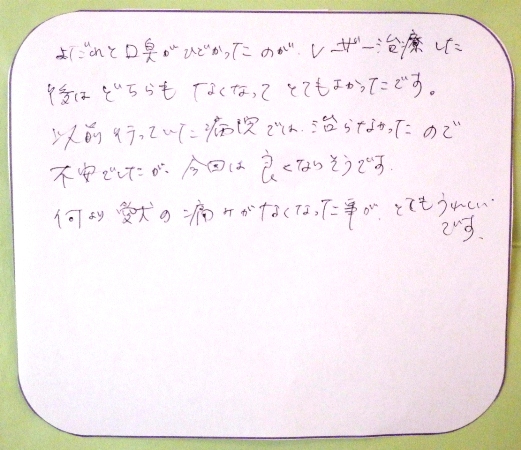 よだれと口臭がひどかったのが、レーザー治療した
後は どちらも なくなって とてもよかったです。
以前 行っていた病院では、治らなかったので
不安でしたが、今回は 良くなりそうです。
何より 愛犬の 痛みがなくなった事が、とてもうれしい
です。